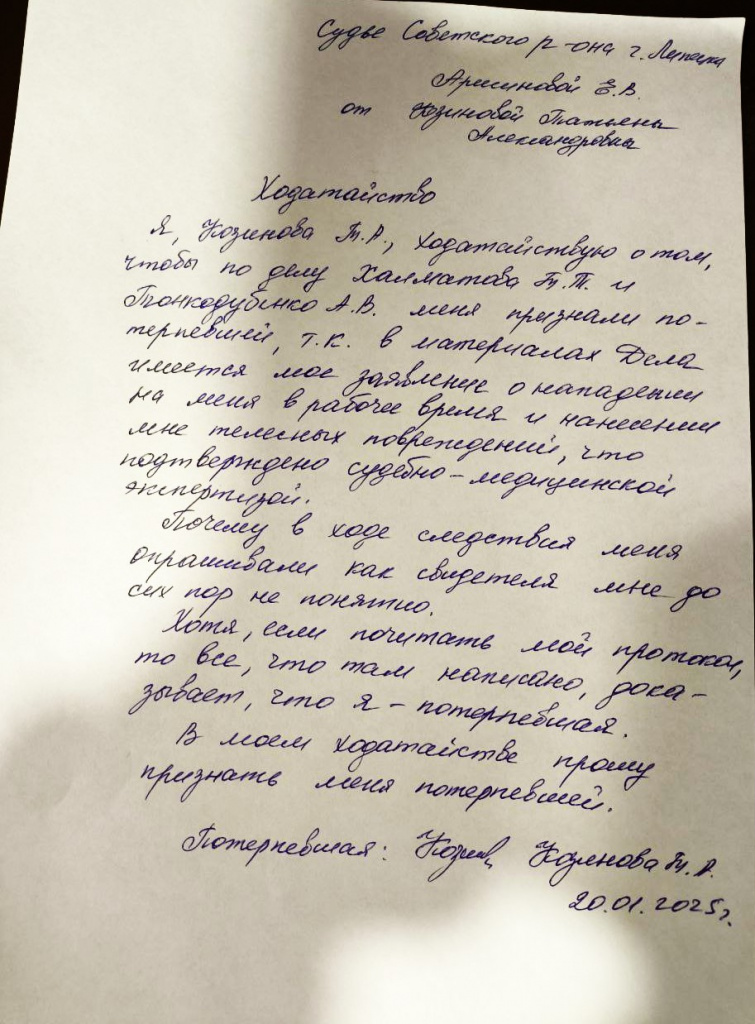 Судье Советского р-она г. Липецка
Аршиновой Е.В.
от Козиновой Татьяны
Александровны
Ходатайство
Я, Козинова Т.А., ходатайствую о том,
чтобы по делу Халматова Т.Т. и
Тонкодубенко А.В. меня признали по-
терпевшей, т.к. в материалах Дела
имеется мое заявление о нападении
на меня в рабочее время и нанесении
мне телесных повреждений, что
подтверждено судебно-медицинской
экспертизой.
Почему в ходе следствия меня
опрашивали как свидетеля мне до
сих пор не понятно.
Хотя, если почитать мой протокол,
то все, что там написано, дока-
зывает, что я - потерпевшая.
В моем ходатайстве прошу
признать меня потерпевшей.
Потерпевшая: Козинова Т.А.
20.01.2025г.